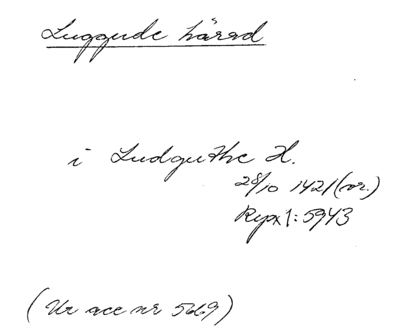 Luggude härad
i Ludguthe H.
28/10 1421 (or.)
Rep 1: 5943
(Ur acc nr 5669)